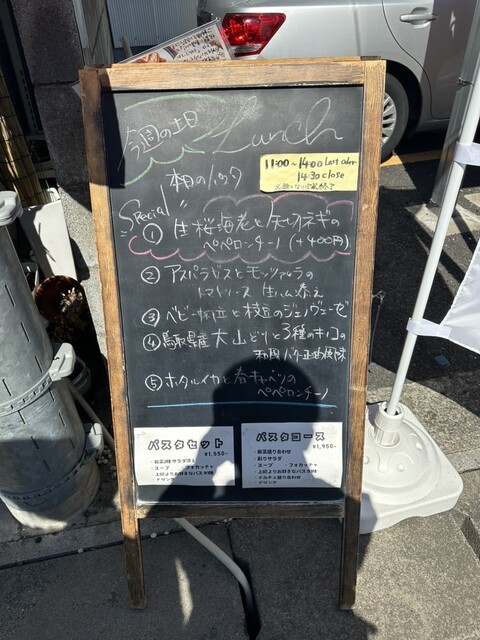 今週の土日 Lunch
11:00~14:00 Last order
14:30 close
本日のパスタ
Special
① 生桜海老と矢切ネギの
ペペロンチーノ (+400円)
② アスパラガスとモッツァレラの
トマトソース 生ハム添え
③ ベビー帆立と枝豆のジェノヴェーゼ
④ 鳥取県産 大山どりと3種のキノコの
和風バター正油風味
⑤ ホタルイカと春キャベツの
ペペロンチーノ
パスタセット
¥1,550-
・前菜2種サラダ添え
・スープ ・フォカッチャ
・上記よりお好きなパスタ1種
・ドリンク
パスタコース
¥1,950-
・前菜盛り合わせ
・彩りサラダ
・スープ ・フォカッチャ
・上記よりお好きなパスタ1種
・ドルチェ盛り合わせ
・ドリンク